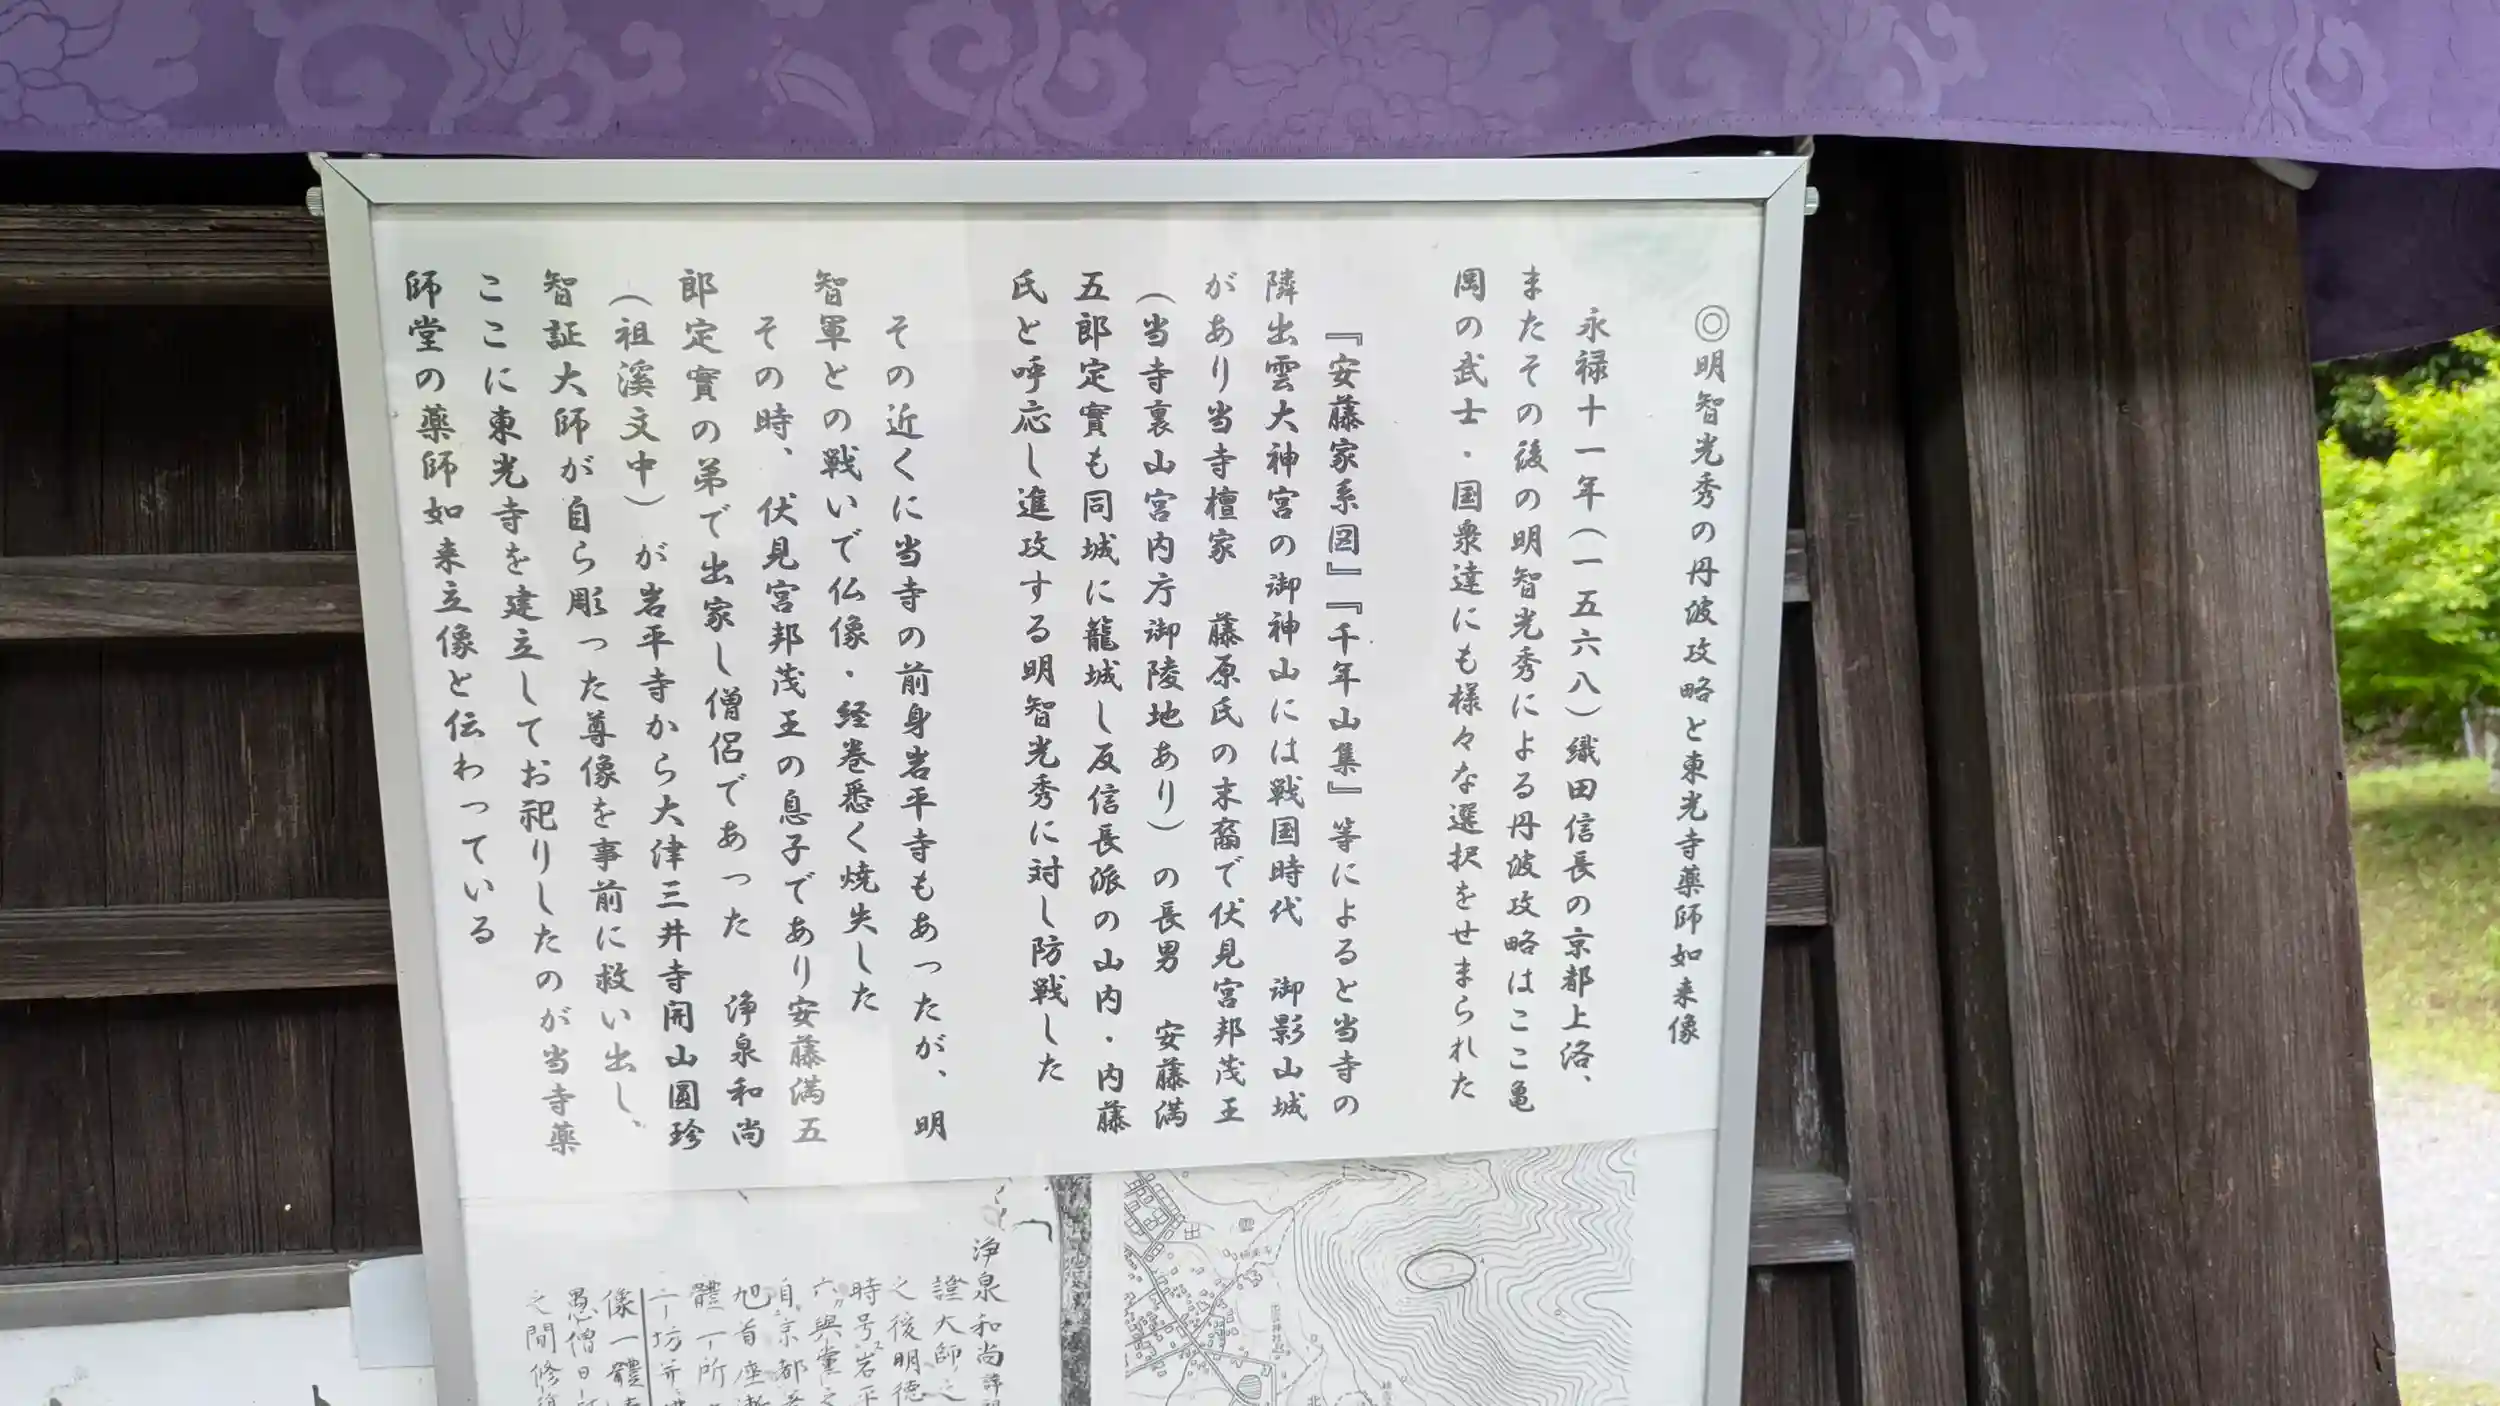 ◎明智光秀の丹波攻略と東光寺薬師如来像
永禄十一年(一五六八)織田信長の京都上洛、
またその後の明智光秀による丹波攻略はここ亀
岡の武士・国衆達にも様々な選択をせまられた
『安藤家系図』『千年山集』等によると当寺の
隣出雲大神宮の御神山には戦国時代 御影山城
があり当寺檀家 藤原氏の末裔で伏見宮邦茂王
(当寺裏山宮内庁御陵地あり)の長男 安藤満
五郎定實も同城に籠城し反信長派の山内・内藤
氏と呼応し進攻する明智光秀に対し防戦した
その近くに当寺の前身岩平寺もあったが、明
智軍との戦いで仏像・経巻悉く焼失した
その時、伏見宮邦茂王の息子であり安藤満五
郎定實の弟で出家し僧侶であった 浄泉和尚
(祖溪文中)が岩平寺から大津三井寺開山圓珍
智証大師が自ら彫った尊像を事前に救い出し、
ここに東光寺を建立してお祀りしたのが当寺薬
師堂の薬師如来立像と伝わっている
浄泉和尚
證大師之
之後明徳
時号岩平
六與黨之
自京都
旭首座
體一所
十坊并
像一體
愚僧日
之間修